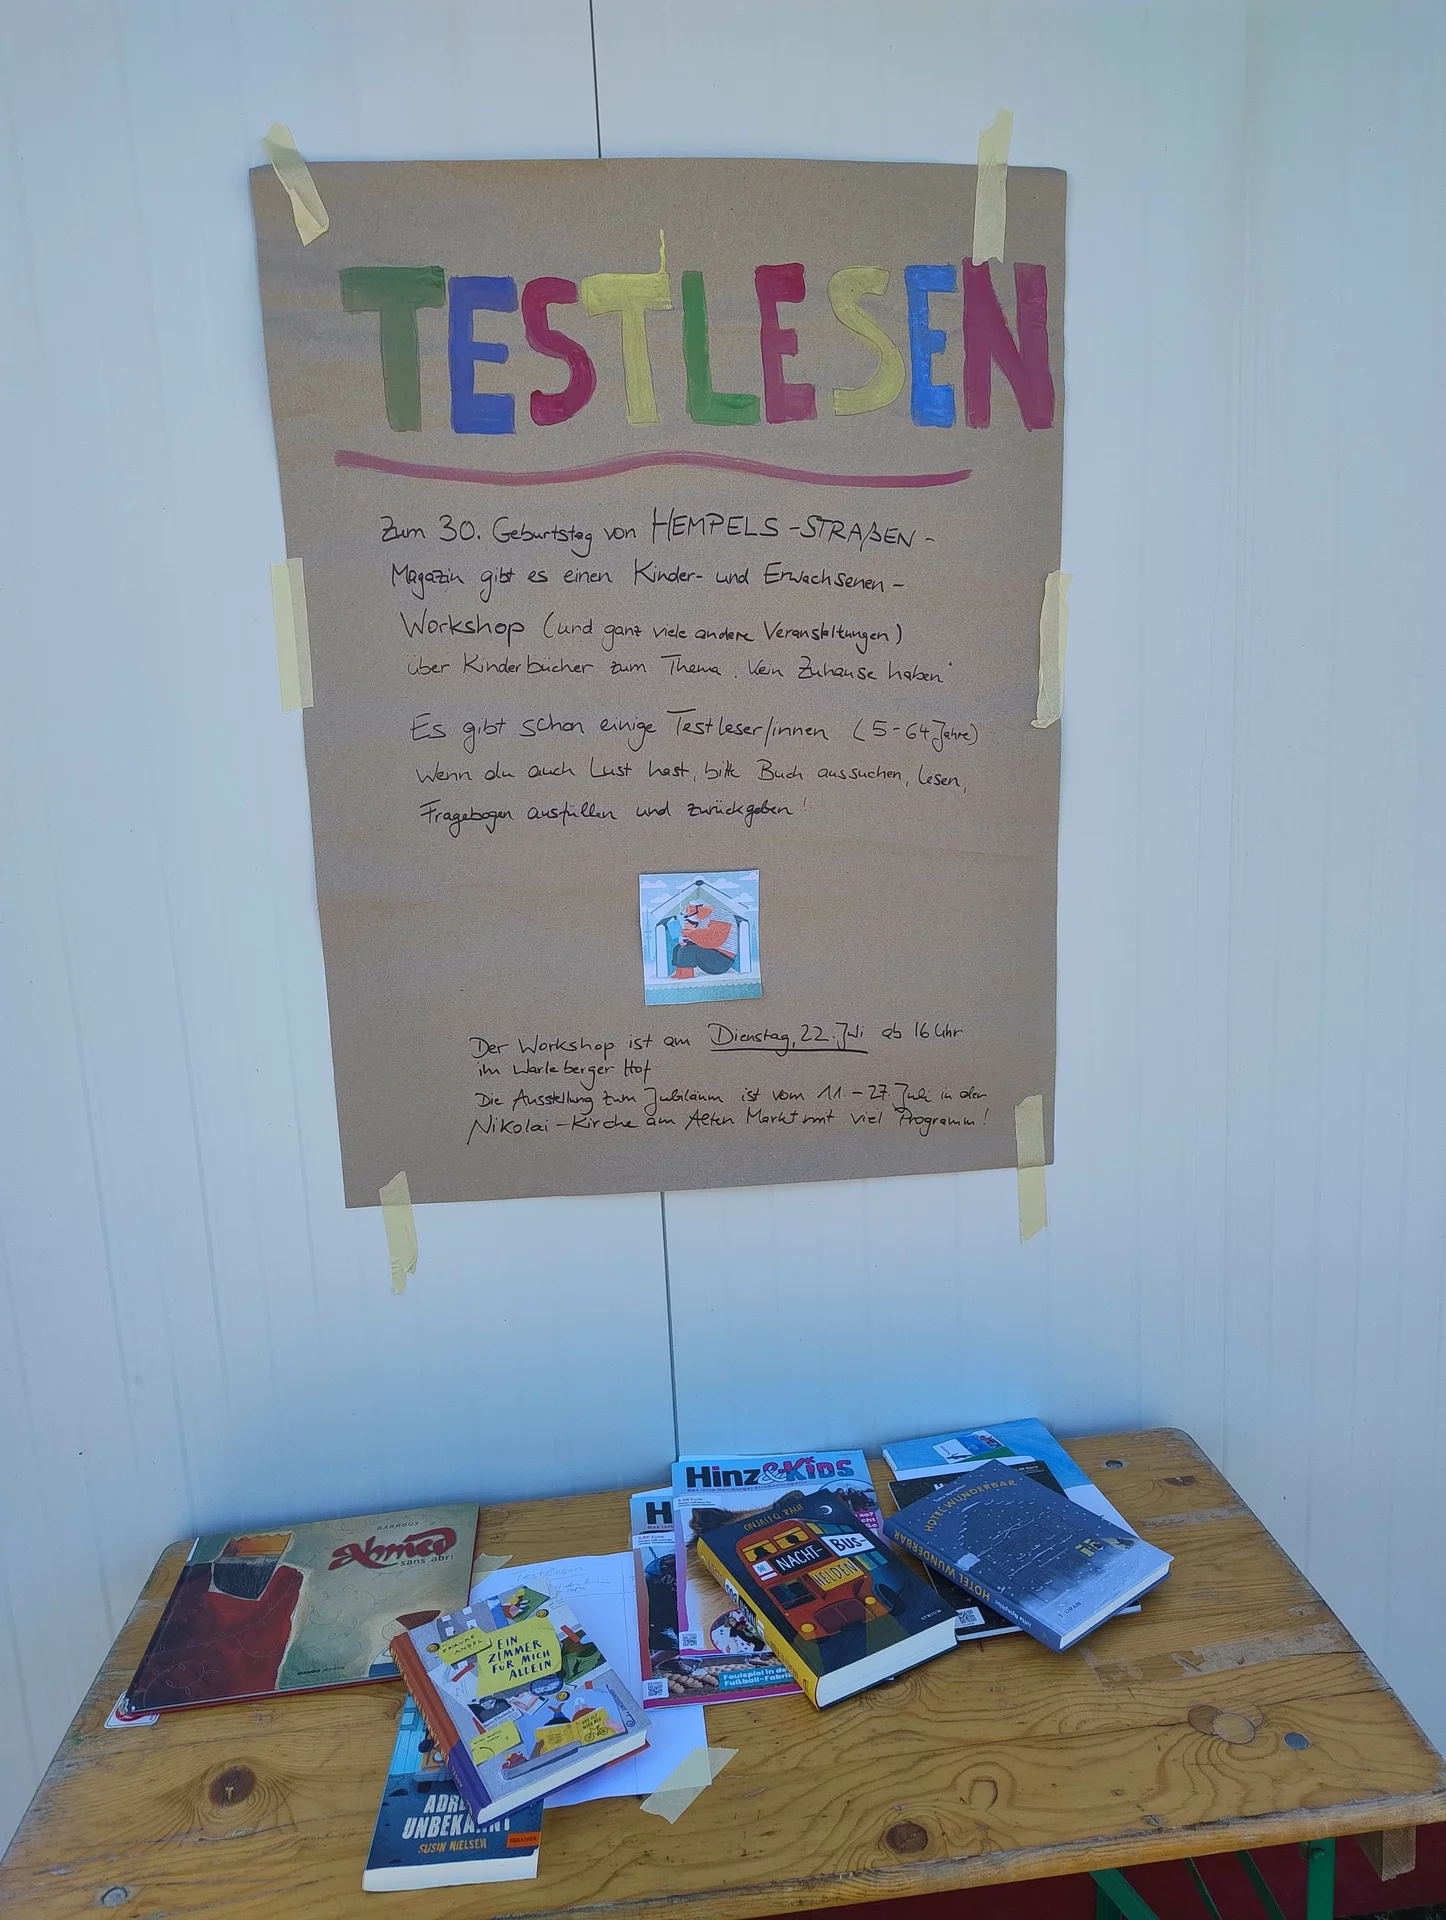 TESTLESEN
Zum 30. Geburtstag von HEMPELS-STRAßEN-
Magazin gibt es einen Kinder- und Erwachsenen-
Workshop (und ganz viele andere Veranstaltungen)
über Kinderbücher zum Thema „Kein Zuhause haben“
Es gibt schon einige Testleser/innen (5-64 Jahre)
Wenn du auch Lust hast, bitte Buch aussuchen, lesen,
Fragebogen ausfüllen und zurückgeben!
Der Workshop ist am Dienstag, 22. Juli ab 16 Uhr
im Warleberger Hof
Die Ausstellung zum Jubiläum ist vom 11.-27. Juli in der
Nikolai-Kirche am Alten Markt mit viel Programm!
BARROUX
Ahmed
sans abri
Testlesen
FRAUKE
ANGEL
EIN
ZIMMER
FÜR MICH
ALLEIN
ADRE
UNBEKANNT
SUSIN NIELSEN
GULLIVER
H
Hinz&Kids
Foulspiel in de
Fußball-Fabrik
ONJALI Q. RAÚF
DIE
NACHT-
BUS-
HELDEN
ATRIUM
HOTEL WUNDERBAR
HOTEL WUNDERBAR